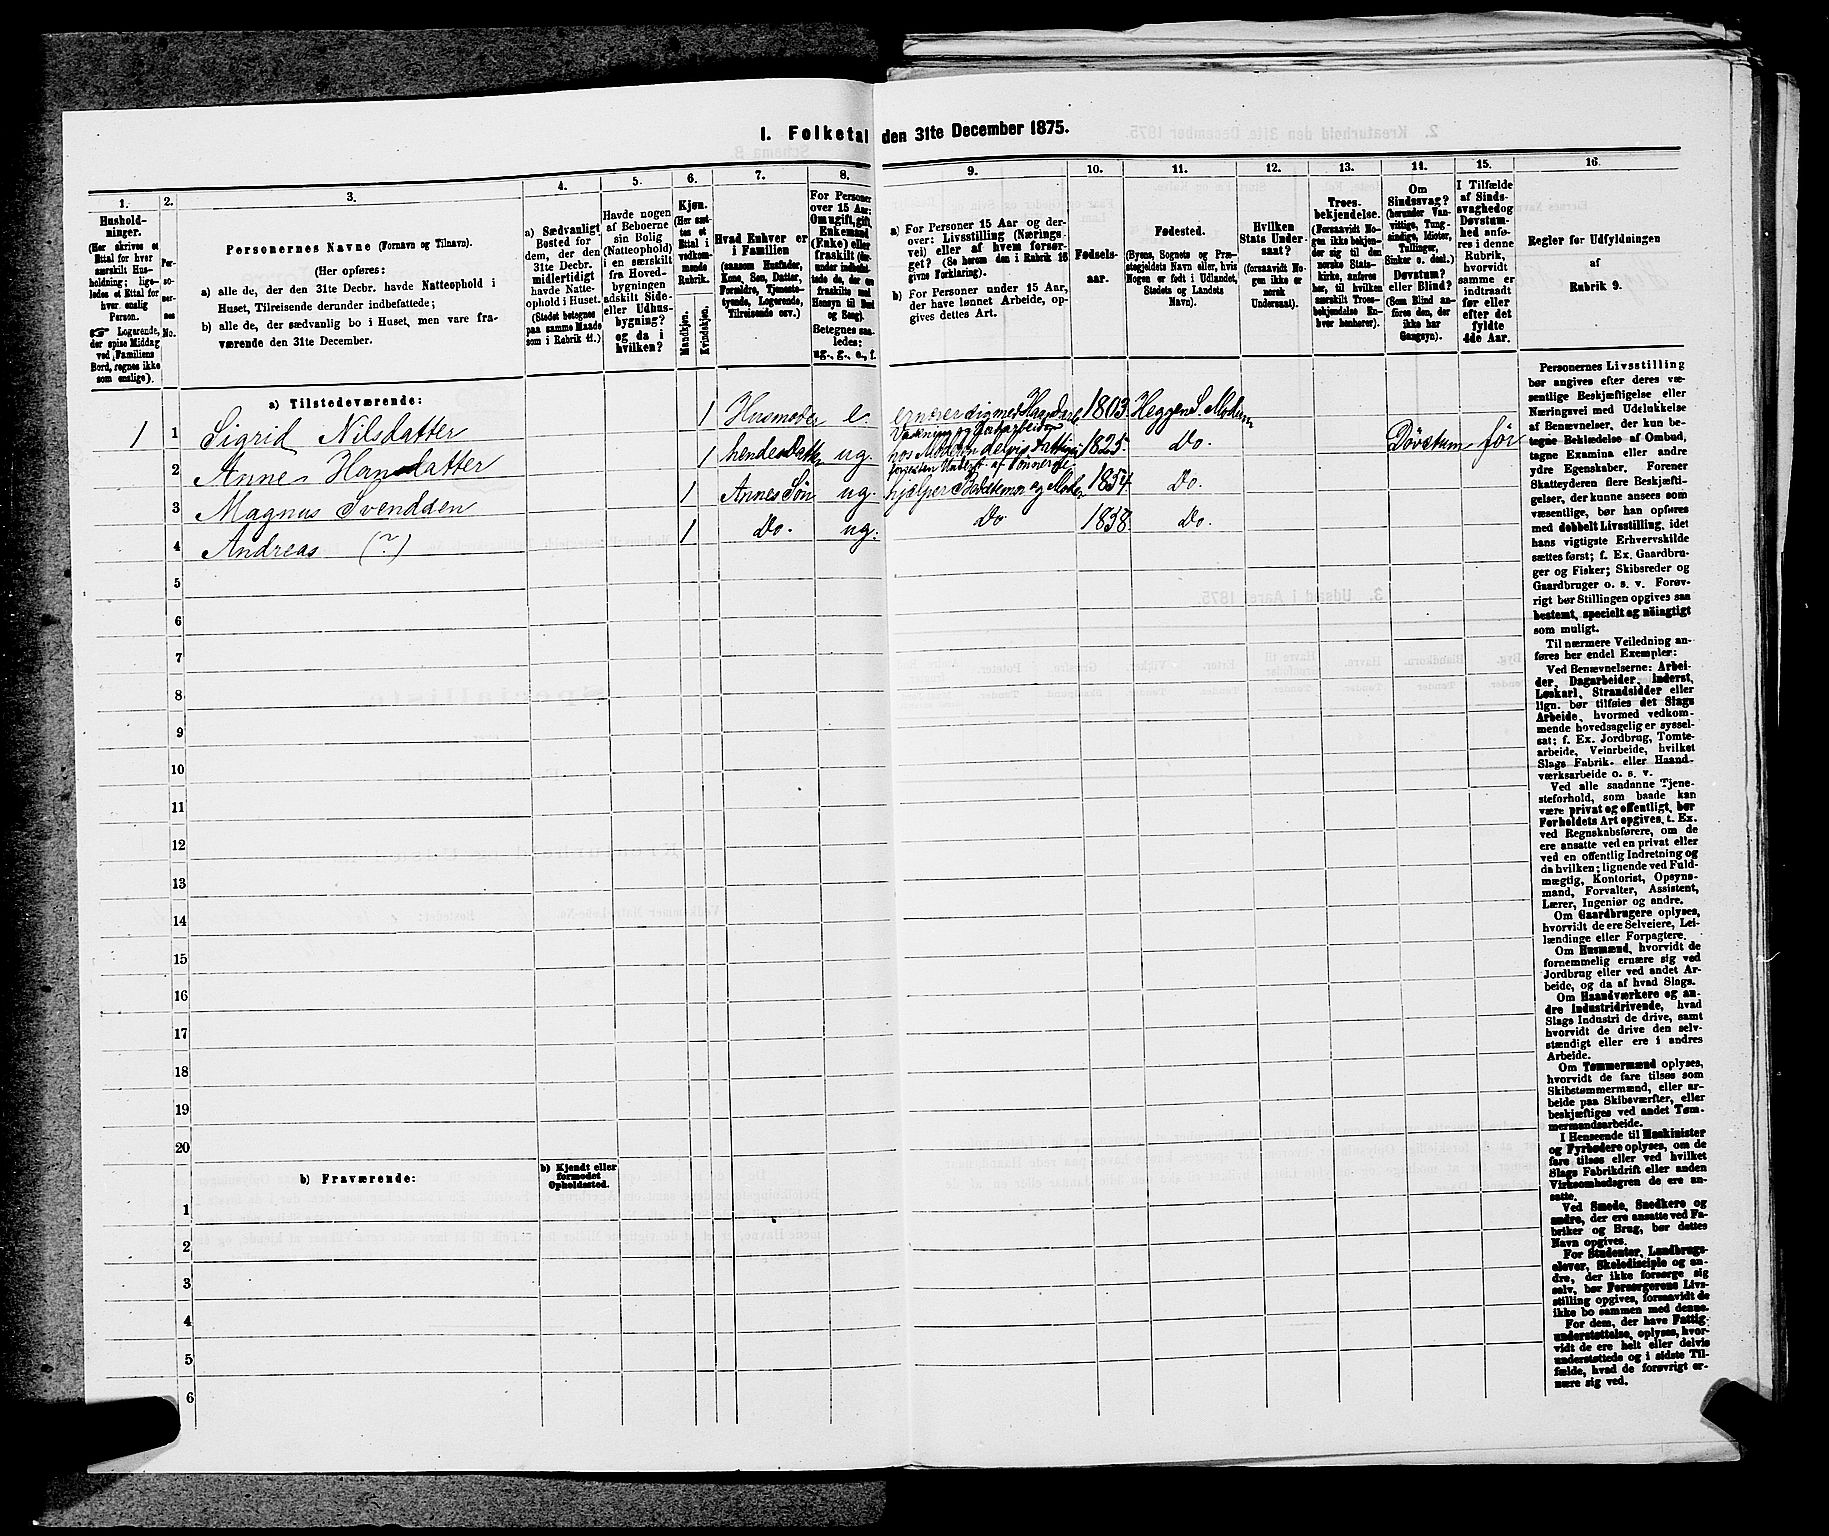 I. Folketal den 31te December 1875.
1.
Hushold-
ninger.
(Her skrives et
Ettal for hver
særskilt Hus-
holdning; lige-
ledes et Ettal for
hver enslig
Person.
☞ Logerende,
der spise Middag
ved Familiens
Bord, regnes ikke
som enslige).
2.
Per-
so-
ner-
nes
No.
3.
Personernes Navne (Fornavn og Tilnavn).
(Her opføres:
a) alle de, der den 31te Decbr. havde Natteophold i
Huset, Tilreisende derunder indbefattede;
b) alle de, der sædvanlig bo i Huset, men vare fra-
værende den 31te December.
4.
a) Sædvanligt
Bosted for
dem, der den
31te Decbr.
midlertidigt
havde Natte-
ophold i Huset.
(Stedet betegnes
paa samme Maade
som i Rubrik 11.)
5.
Havde nogen
af Beboerne
sin Bolig
(Natteophold)
i en særskilt
fra Hoved-
bygningen
adskilt Side-
eller Udhus-
bygning?
og da i
hvilken?
6.
Kjøn.
(Her sæt-
tes et
Ettal i
vedkom-
mende
Rubrik.
Mandkjøn.
Kvindekjøn.
7.
Hvad Enhver er
i Familien
(saasom Husfader,
Kone, Søn, Datter,
Forældre, Tjeneste-
tyende, Logerende,
Tilreisende osv.)
8.
For Personer
over 15 Aar:
Om ugift, gift,
Enkemand
(Enke) eller
fraskilt (der-
under indbefat-
tede de, der ere
fraskilte med
Hensyn til Bord
og Seng).
Betegnes saa-
ledes:
ug., g., e., f.
9.
a) For Personer 15 Aar og der-
over: Livsstilling (Nærings-
vei) eller af hvem forsør-
get? (Se herom den i Rubrik 16
givne Forklaring).
b) For Personer under 15 Aar,
der have lønnet Arbeide, op-
gives dettes Art.
10.
Fødsels-
aar.
11.
Fødested.
(Byens, Sognets og Præ-
stegjeldets Navn eller, hvis
Nogen er født i Udlandet,
Stedets og Landets
Navn).
12.
Hvilken
Stats Under-
saat?
(foraavidt No-
gen ikke er
norsk
Undersaat).
13.
Troes-
bekjendelse.
(Forsaavidt No-
gen ikke bekjen-
der sig til den
norske Stats-
kirke, anføres
her, til hvilken
særskilt Troes-
bekjendelse En-
hver henhører).
14.
Om
Sindssvag?
(herunder Van-
vittige, Tung-
sindige, Idioter,
Tullinger,
Sinker o. desl.)
Døvstum?
eller Blind?
(Som Blind an-
føres den, der
ikke har
Gangsyn).
15.
I Tilfælde
af Sinds-
svaghed og
Døvstum-
hed anfø-
res i denne
Rubrik,
hvorvidt
samme er
indtraadt
før eller
efter det
fyldte
4de Aar.
16.
Regler for Udfyldningen
af
Rubrik 9.
a) Tilstedeværende:
1 1 Sigrid Nilsdatter 1 Husmoder e. ernærer sig med Haandarb. 1803. Heggen S. Modum
2 Anne Hansdatter 1 hendes Datter ug. hos Moderen delvis Fattig 1825. Do. Døvstum før
3 Magnus Svendden 1 Annes Søn ug. hjælper Bedstemor og Moder 1854. Do.
4 Andreas (?) 1 Do. ug. Do 1858 Do.
5
6
7
8
9
10
11
12
13
14
15
16
17
18
19
20
b) Fraværende:
b) Kjendt eller
formodet
Opholdssted.
1
2
3
4
5
6
Personernes Livsstilling
bør angives efter deres væ-
sentlige Beskjæftigelse eller
Næringsvei med Udelukkelse
af Benævnelser, der kun be-
tegne Beklædelse af Ombud,
tagne Examina eller andre
ydre Egenskaber. Forener
Skatteyderen flere Beskjæfti-
gelser, der kunne ansees som
væsentlige, bør han opføres
med dobbelt Livsstilling, idet
hans vigtigste Erhvervskilde
sættes først; f. Ex. Gaardbru-
ger og Fisker; Skibsreder og
Gaardbruger o. s. v. Forøv-
rigt bør Stillingen opgives saa
bestemt, specielt og nøiagtigt
som muligt.
Til nærmere Veiledning an-
føres her endel Exempler:
Ved Benævnelserne: Arbei-
der, Dagarbeider, Inderst,
Løskarl, Strandsidder eller
lign. bør tilføies det Slags
Arbeide, hvormed vedkom-
mende hovedsagelig er syssel-
sat; f. Ex. Jordbrug, Tomte-
arbeide, Veiarbeide, hvilket
Slags Fabrik- eller Haand-
værksarbeide o. s. v.
Ved alle saadanne Tjene-
steforhold, som baade kan
være privat og offentligt, bør
Forholdets Art opgives, t. Ex.
ved Regnskabsførere, om de
ere ansatte ved en privat eller
ved en offentlig Indretning og
da hvilken; lignende ved Fuld-
mægtig, Kontorist, Opsyns-
mand, Forvalter, Assistent,
Lærer, Ingeniør og andre.
Om Gaardbrugere oplyses,
hvorvidt de ere Selveiere, Lei-
lændinge eller Forpagtere.
Om Husmænd, hvorvidt de
fornemmelig ernære sig ved
Jordbrug eller ved andet Ar-
beide, og da af hvad Slags.
Om Haandværkere og an-
dre Industridrivende, hvad
Slags Industri de drive, samt
hvorvidt de drive den selv-
stændigt eller ere i andres
Arbeide.
Om Tømmermænd oplyses,
hvorvidt de fare tilsøs som
Skibstømmermænd, eller ar-
beide paa Skibsværfter, eller
beskjæftiges ved andet Tøm-
mermandsarbeide.
I Henseende til Maskinister
og Fyrbødere oplyses, om de
fare tilsøs eller ved hvilket
Slags Fabrikdrift eller anden
Virksomhedsgren de ere an-
satte.
Ved Smede, Snedkere og
andre, der ere ansatte ved Fa-
briker og Brug, bør dettes
Navn opgives.
For Studenter, Landbrugs-
elever, Skoledisciple og an-
dre, der ikke forsørge sig
selv, bør Forsørgerens Livs-
stilling opgives, forsaavidt de
ikke bo sammen med denne.
For dem, der have Fattig-
understøttelse, oplyses, hvor-
vidt de ere helt eller delvis
understøttede og i sidste Til-
fælde, hvad de forøvrigt er-
nære sig ved.